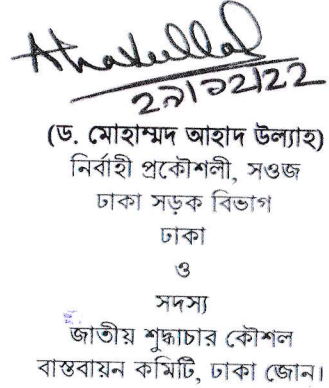 Ahadullah
২৯/১২/২২
(ড. মোহাম্মদ আহাদ উল্যাহ)
নির্বাহী প্রকৌশলী, সওজ
ঢাকা সড়ক বিভাগ
ঢাকা
ও
সদস্য
জাতীয় শুদ্ধাচার কৌশল
বাস্তবায়ন কমিটি, ঢাকা জোন।